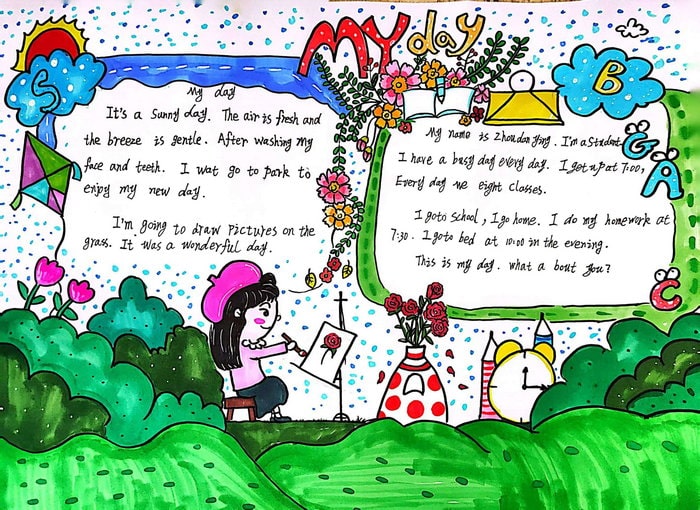 My day
S
B
G
A
C
My day
It's a sunny day. The air is fresh and
the breeze is gentle. After washing my
face and teeth. I wat go to park to
enjoy my new day.
I'm going to draw pictures on the
grass. It was a wonderful day.
My name is Zhoudan Ying. I'm a student.
I have a busy day every day. I get up at 7:00,
Every day we eight classes.
I goto school, I go home. I do my homework at
7:30. I goto bed at 10:00 in the evening.
This is my day. what a bout you?